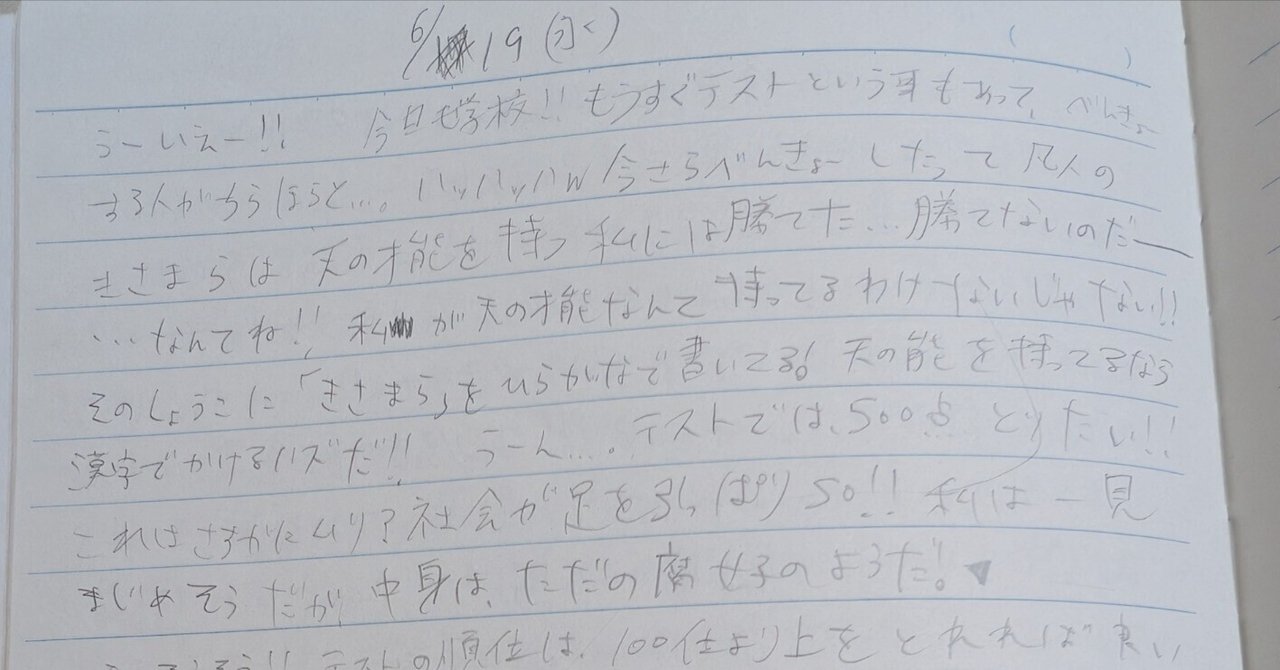 6/19(水)
うーいえー!! 今日も学校!! もうすぐテストという事もあって、べんきょー
する人がちらほらと…。ハッハッハw 今さらべんきょーしたって凡人の
きさまらは 天の才能を持つ私には勝てた…勝てないのだー
…なんてね!! 私が天の才能なんて持ってるわけないじゃない!!
そのしょうこに「きさまら」をひらがなで書いてる! 天の能を持ってるなら
漢字でかけるハズだ!! うーん…。テストでは、500点 とりたい!!
これはさすがにムリ? 社会が足を引っぱりSO!! 私は一見
まじめそうだが、中身は、ただの腐女子のようだ。▼
テストの順位は、100位より上をとれれば良い